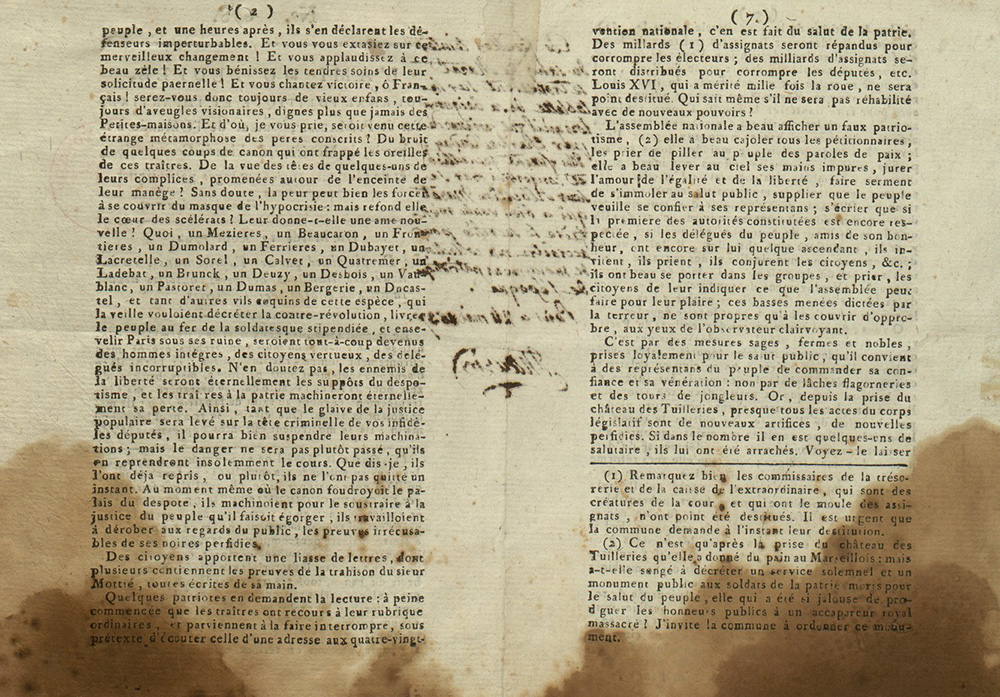 ( 2 )
peuple , et une heures après , ils s'en déclarent les dé-
fenseurs imperturbables. Et vous vous extasiez sur ce
merveilleux changement ! Et vous applaudissez à ce
beau zéle ! Et vous bénissez les tendres soins de leur
solicitude paernelle ! Et vous chantez victoire , ô Fran-
çais ! serez-vous donc toujours de vieux enfans, tou-
jours d'aveugles visionaires , dignes plus que jamais des
Petites-maisons. Et d'où, je vous prie, seroit venu cette
étrange métamorphose des peres conscrits ? Du bruit
de quelques coups de canon qui ont frappé les oreilles
de ces traîtres. De la vue des têtes de quelques-uns de
leurs complices , promenées autour de l'enceinte de
leur manége ? Sans doute , la peur peut bien les forcer
à se couvrir du masque de l'hypocrisie : mais refond elle
le cœur des scélérats ? Leur donne-t-elle une ame nou-
velle ? Quoi , un Mezieres , un Beaucaron , un Fron-
tieres , un Dumolard , un Ferrieres , un Dubayet, un
Lacretelle , un Sorel , un Calvet , un Quatremer, un
Ladebat , un Brunck , un Deuzy , un Desbois , un Vau-
blanc, un Pastoret, un Dumas , un Bergerie , un Ducas-
tel , et tant d'autres vils coquins de cette espèce , qui
la veille vouloient décréter la contre-révolution , livrer
le peuple au fer de la soldatesque stipendiée , et ense-
velir Paris sous ses ruine , seroient tout-à-coup devenus
des hommes intégres , des citoyens vertueux, des délé-
gués incorruptibles. N'en doutez pas , les ennemis de
la liberté seront éternellement les suppôts du despo-
tisme , et les traîtres à la patrie machineront éternelle-
ment sa perte. Ainsi , tant que le glaive de la justice
populaire sera levé sur la tête criminelle de vos infidè-
les députés , il pourra bien suspendre leurs machina-
tions ; mais le danger ne sera pas plutôt passé , qu'ils
en reprendront insolemment le cours. Que dis-je , ils
l'ont déja repris , ou plutôt, ils ne l'ont pas quitté un
instant. Au moment même où le canon foudroyoit le pa-
lais du despote , ils machinoient pour le soustraire à la
justice du peuple qu'il faisoit égorger , ils travailloient
à dérober aux regards du public , les preuves irrécusa-
bles de ses noires perfidies.
Des citoyens apportent une liasse de lettres, dont
plusieurs contiennent les preuves de la trahison du sieur
Mottié , toutes écrites de sa main.
Quelques patriotes en demandent la lecture : à peine
commencée que les traîtres ont recours à leur rubrique
ordinaires , et parviennent à la faire interrompre, sous
prétexte d'écouter celle d'une adresse aux quatre-vingt-
( 7. )
vention nationale , c'en est fait du salut de la patrie.
Des millards (1) d'assignats seront répandus pour
corrompre les électeurs ; des milliards d'assignats se-
ront distribués pour corrompre les députés, etc.
Louis XVI, qui a mérité mille fois la roue , ne sera
point destitué. Qui sait même s'il ne sera pas réhabilité
avec de nouveaux pouvoirs ?
L'assemblée nationale a beau afficher un faux patrio-
tisme, (2) elle a beau cajoler tous les pétitionnaires,
les prier de piller au peuple des paroles de paix ;
elle a beau lever au ciel ses mains impures, jurer
l'amour de l'égalité et de la liberté , faire serment
de s'immoler au salut public , supplier que le peuple
veuille se confier à ses représentans ; s'écrier que si
la premiere des autorités constituées est encore res-
pectée , si les délégués du peuple , amis de son bon-
heur, ont encore sur lui quelque ascendant , ils in-
vitent , ils prient , ils conjurent les citoyens , &c. ;
ils ont beau se porter dans les groupes , et prier, les
citoyens de leur indiquer ce que l'assemblée peut
faire pour leur plaire ; ces basses menées dictées par
la terreur, ne sont propres qu'à les couvrir d'oppro-
bre , aux yeux de l'observateur clairvoyant.
C'est par des mesures sages , fermes et nobles ,
prises loyalement pour le salut public, qu'il convient
à des représentans du peuple de commander sa con-
fiance et sa vénération : non par de lâches flagorneries
et des tours de jongleurs. Or , depuis la prise du
château des Tuilleries, presque tous les actes du corps
législatif sont de nouveaux artifices , de nouvelles
perfidies. Si dans le nombre il en est quelques-uns de
salutaire , ils lui ont été arrachés. Voyez - le laisser
(1) Remarquez bien les commissaires de la tréso-
rerie et de la caisse de l'extraordinaire , qui sont des
créatures de la cour , et qui ont le moule des assi-
gnats , n'ont point été destitués. Il est urgent que
la commune demande à l'instant leur destitution.
(2) Ce n'est qu'après la prise du château des
Tuilleries qu'elle a donné du pain au Marseillois : mais
a-t-elle songé à décréter un service solemnel et un
monument public aux soldats de la patrie morts pour
le salut du peuple , elle qui a été si jalouse de pro-
diguer les honneurs publics à un accapareur royal
massacré ? J'invite la commune à ordonner ce monu-
ment.